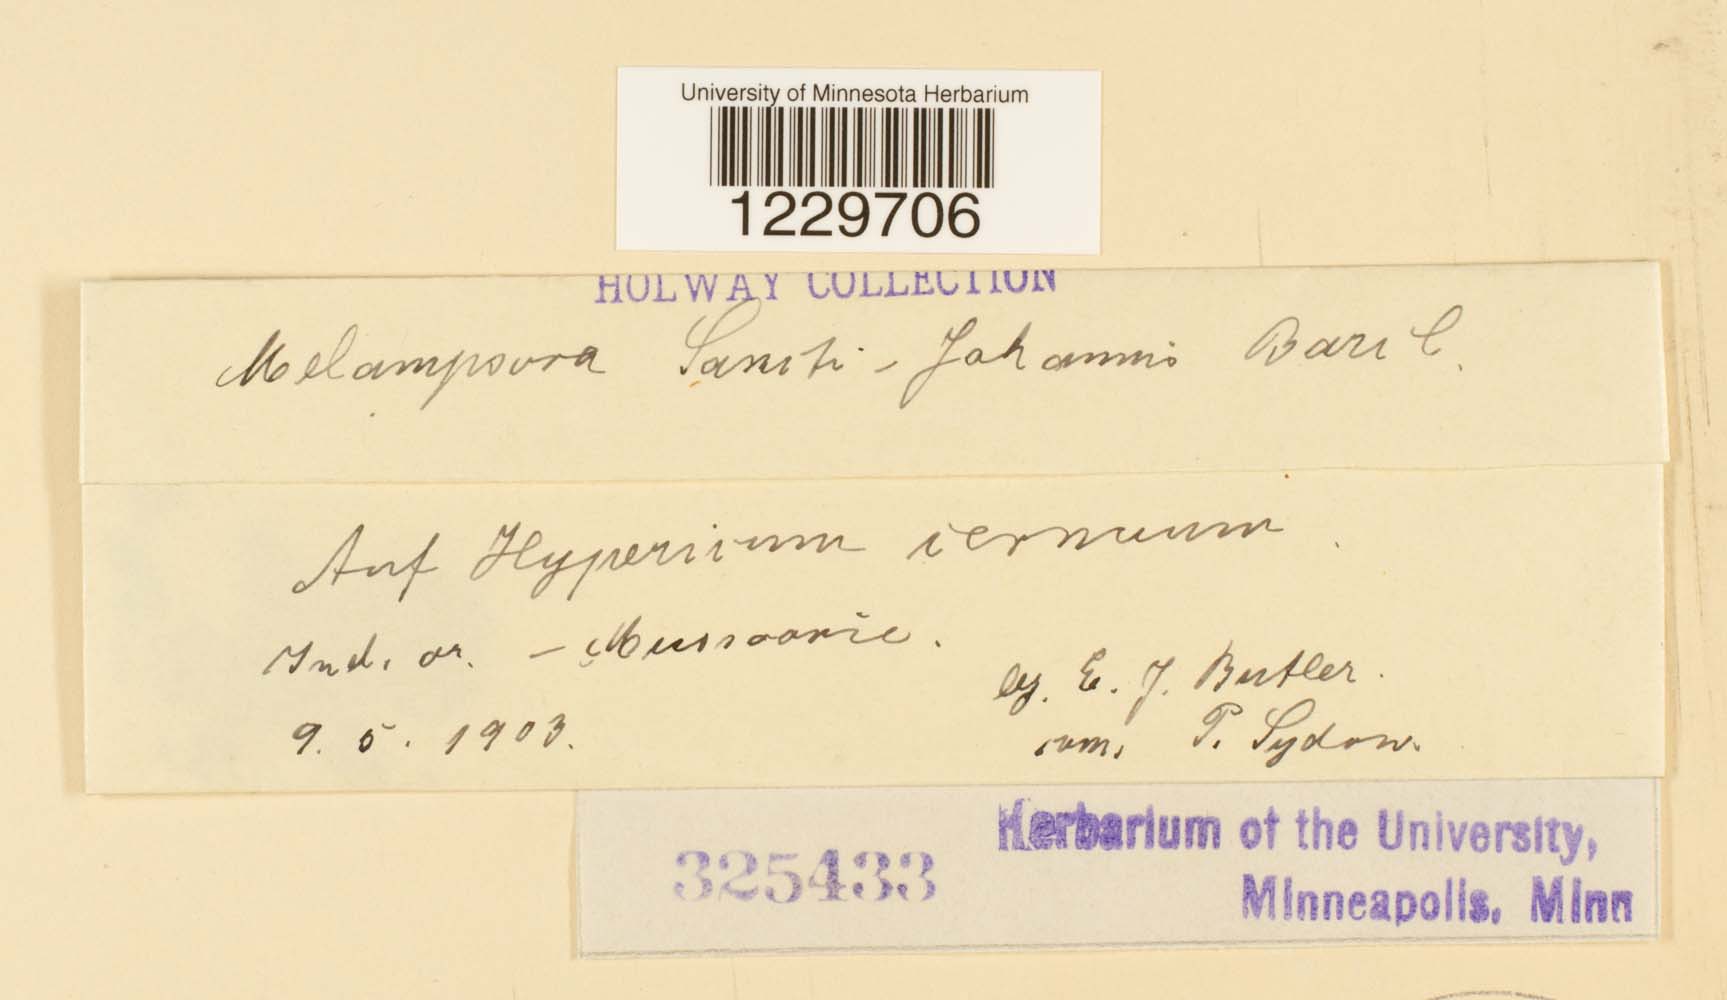 University of Minnesota Herbarium
1229706
HOLWAY COLLECTION
Melampsora Sancti-Johannis Barcl.
Auf Hypericum cernuum.
Ind. or. - Mussoorie.
leg. E. J. Butler.
com. P. Sydow.
9. 5. 1903.
325433
Herbarium of the University,
Minneapolis, Minn